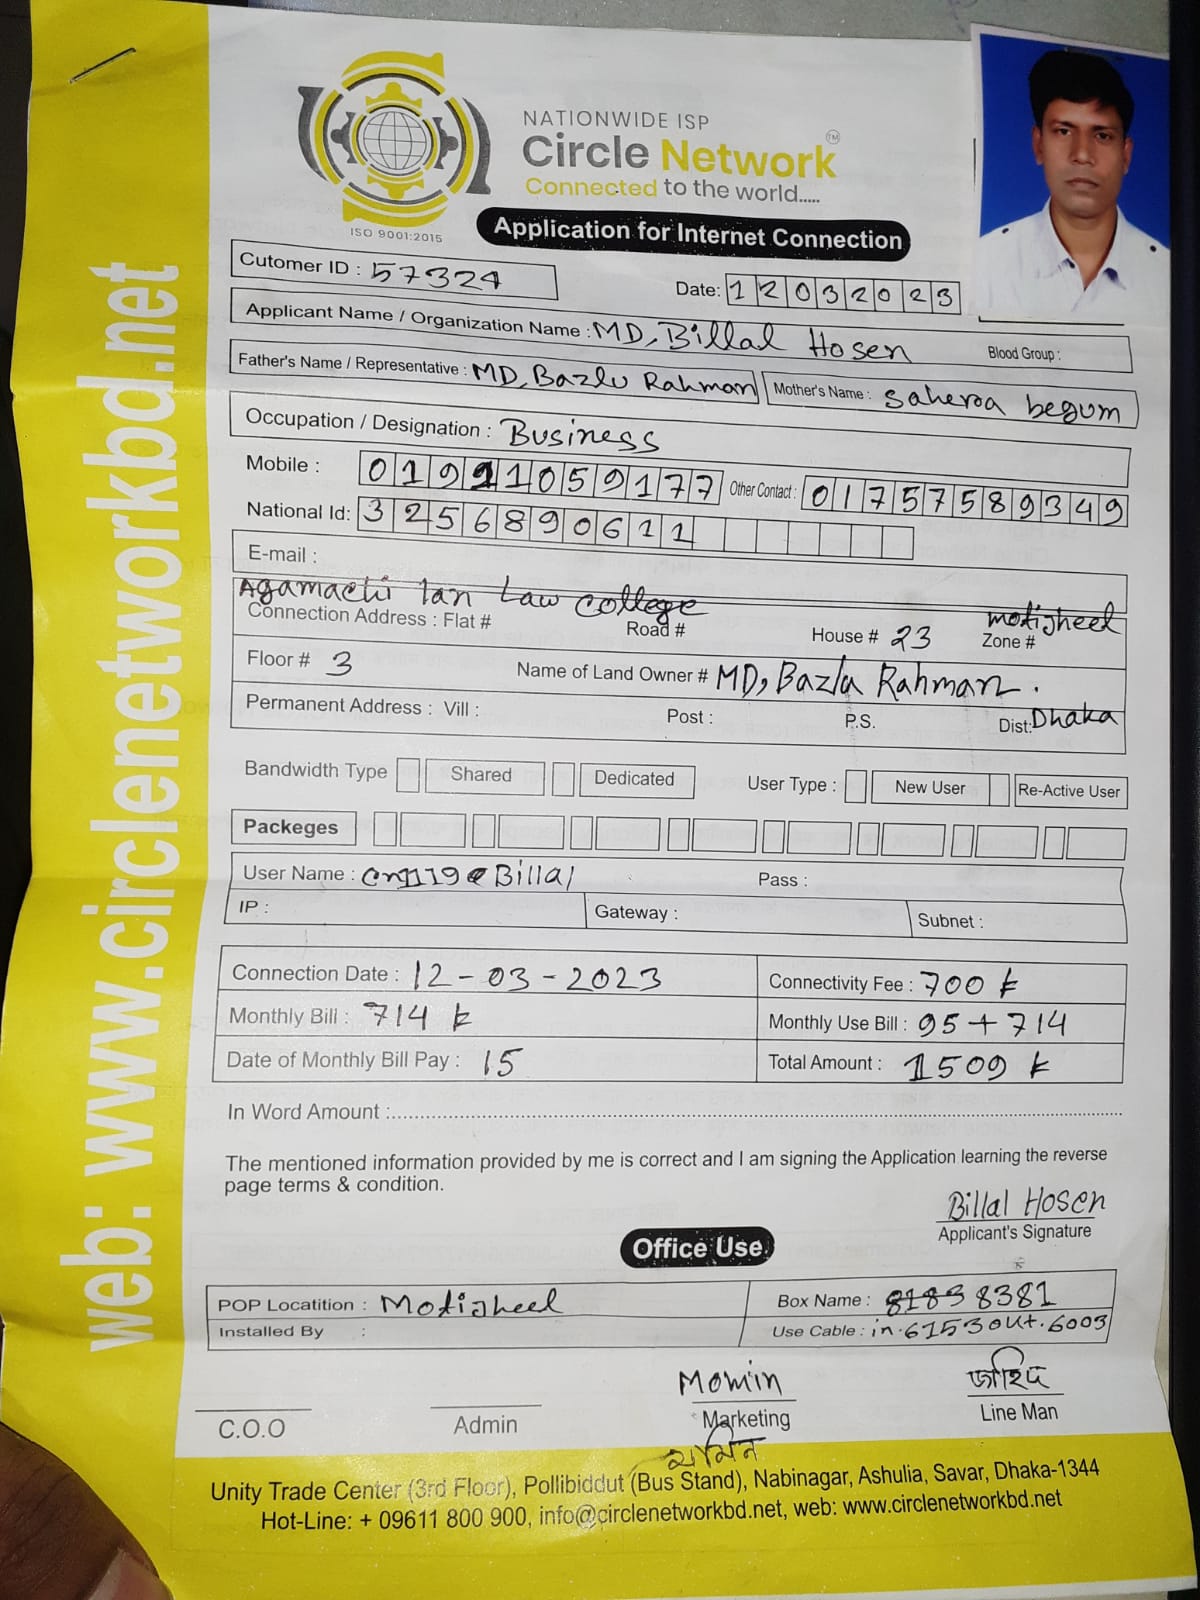 web: www.circlenetworkbd.net
NATIONWIDE ISP
Circle Network TM
Connected to the world.....
ISO 9001:2015
Application for Internet Connection
Cutomer ID : 57324
Date: 12032023
Applicant Name / Organization Name : MD, Billal Hosen Blood Group :
Father's Name / Representative : MD, Bazlu Rahman Mother's Name : Saheroa begum
Occupation / Designation : Business
Mobile : 01991059177 Other Contact : 01757589349
National Id: 3256890611
E-mail :
Agamachi Lan Law College
Connection Address : Flat # Road # House # 23 Zone # motijheel
Floor # 3 Name of Land Owner # MD, Bazla Rahman.
Permanent Address : Vill : Post : P.S. Dist: Dhaka
Bandwidth Type Shared Dedicated User Type : New User Re-Active User
Packeges
User Name : Cn1119@Billal Pass :
IP : Gateway : Subnet :
Connection Date : 12-03-2023 Connectivity Fee : 700 ৳
Monthly Bill : 714 ৳ Monthly Use Bill : 95+714
Date of Monthly Bill Pay : 15 Total Amount : 1509 ৳
In Word Amount :
The mentioned information provided by me is correct and I am signing the Application learning the reverse
page terms & condition.
Billal Hosen
Applicant's Signature
Office Use
POP Locatition : Motijheel Box Name : 8183 8381
Installed By : Use Cable : in.6153 out.6003
Momin জাহিদ
C.O.O Admin Marketing Line Man
মমিন
Unity Trade Center (3rd Floor), Pollibiddut (Bus Stand), Nabinagar, Ashulia, Savar, Dhaka-1344
Hot-Line: + 09611 800 900, info@circlenetworkbd.net, web: www.circlenetworkbd.net